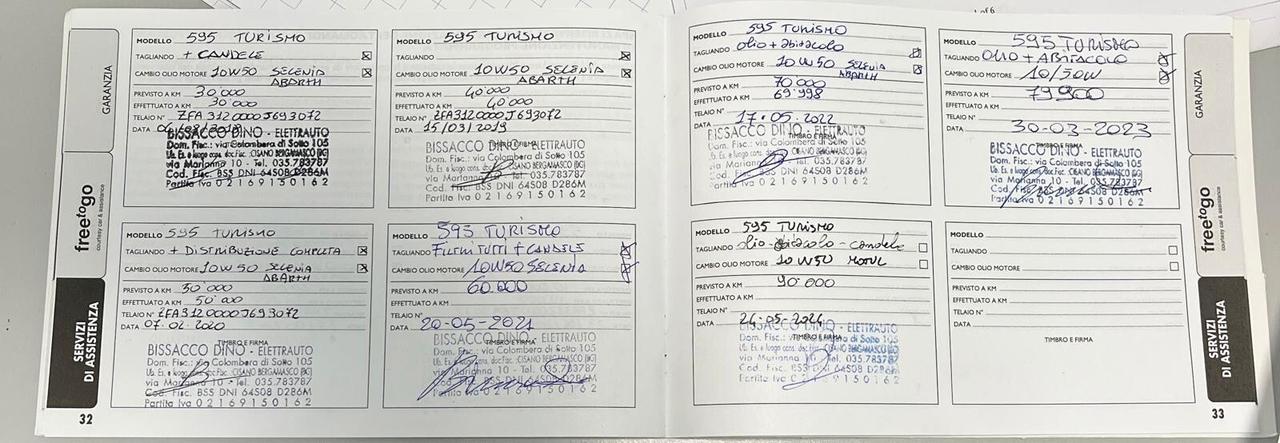 1 of 6
GARANZIA
freetogo
courtesy car & assistance
SERVIZI
DI ASSISTENZA
MODELLO 595 TURISMO
TAGLIANDO + CANDELE
CAMBIO OLIO MOTORE 10W50 SELENIA
ABARTH
PREVISTO A KM 30'000
EFFETTUATO A KM 30'000
TELAIO N° ZFA3120000J693072
DATA
BISSACCO DINO - ELETTRAUTO
Dom. Fisc.: via Colombera di Sotto 105
Ub. Es. e luogo cons. doc.Fisc. CISANO BERGAMASCO (BG)
via Marianna 10 - Tel. 035.783787
Cod. Fisc. BSS DNI 64S08 D286M
Partita Iva 0 2 1 6 9 1 5 0 1 6 2
MODELLO 595 TURISMO
TAGLIANDO
CAMBIO OLIO MOTORE 10W50 SELENIA
ABARTH
PREVISTO A KM 40'000
EFFETTUATO A KM 40'000
TELAIO N° ZFA3120000J693072
DATA 15/03/2019
TIMBRO E FIRMA
BISSACCO DINO - ELETTRAUTO
Dom. Fisc.: via Colombera di Sotto 105
Ub. Es. e luogo cons. doc.Fisc. CISANO BERGAMASCO (BG)
via Marianna 10 - Tel. 035.783787
Cod. Fisc. BSS DNI 64S08 D286M
Partita Iva 0 2 1 6 9 1 5 0 1 6 2
MODELLO 595 TURISMO
TAGLIANDO + DISTRIBUZIONE COMPLETA
CAMBIO OLIO MOTORE 10W50 SELENIA
ABARTH
PREVISTO A KM 30'000
EFFETTUATO A KM 50'000
TELAIO N° ZFA3120000J693072
DATA 07.02.2020
TIMBRO E FIRMA
BISSACCO DINO - ELETTRAUTO
Dom. Fisc.: via Colombera di Sotto 105
Ub. Es. e luogo cons. doc.Fisc. CISANO BERGAMASCO (BG)
via Marianna 10 - Tel. 035.783787
Cod. Fisc. BSS DNI 64S08 D286M
Partita Iva 0 2 1 6 9 1 5 0 1 6 2
MODELLO 595 TURISMO
TAGLIANDO FILTRI TUTTI + CANDELE
CAMBIO OLIO MOTORE 10W50 SELENIA
PREVISTO A KM 60.000
EFFETTUATO A KM
TELAIO N°
DATA 20-05-2021
TIMBRO E FIRMA
BISSACCO DINO - ELETTRAUTO
Dom. Fisc.: via Colombera di Sotto 105
Ub. Es. e luogo cons. doc.Fisc. CISANO BERGAMASCO (BG)
via Marianna 10 - Tel. 035.783787
Cod. Fisc. BSS DNI 64S08 D286M
Partita Iva 0 2 1 6 9 1 5 0 1 6 2
32
MODELLO 595 TURISMO
TAGLIANDO olio + abitacolo
CAMBIO OLIO MOTORE 10W50 SELENIA
ABARTH
PREVISTO A KM 70'000
EFFETTUATO A KM 69'998
TELAIO N°
DATA 17.05.2022
TIMBRO E FIRMA
BISSACCO DINO - ELETTRAUTO
Dom. Fisc.: via Colombera di Sotto 105
Ub. Es. e luogo cons. doc.Fisc. CISANO BERGAMASCO (BG)
via Marianna 10 - Tel. 035.783787
Cod. Fisc. BSS DNI 64S08 D286M
Partita Iva 0 2 1 6 9 1 5 0 1 6 2
MODELLO 595 TURISMO
TAGLIANDO OLIO + ABITACOLO
CAMBIO OLIO MOTORE 10/50W
PREVISTO A KM 79900
EFFETTUATO A KM
TELAIO N°
DATA 30-03-2023
TIMBRO E FIRMA
BISSACCO DINO - ELETTRAUTO
Dom. Fisc.: via Colombera di Sotto 105
Ub. Es. e luogo cons. doc.Fisc. CISANO BERGAMASCO (BG)
via Marianna 10 - Tel. 035.783787
Cod. Fisc. BSS DNI 64S08 D286M
Partita Iva 0 2 1 6 9 1 5 0 1 6 2
MODELLO 595 TURISMO
TAGLIANDO olio-abitacolo-candele
CAMBIO OLIO MOTORE 10W50 MOTUL
PREVISTO A KM 90'000
EFFETTUATO A KM
TELAIO N°
DATA 26-05-2024
TIMBRO E FIRMA
BISSACCO DINO - ELETTRAUTO
Dom. Fisc.: via Colombera di Sotto 105
Ub. Es. e luogo cons. doc.Fisc. CISANO BERGAMASCO (BG)
via Marianna 10 - Tel. 035.783787
Cod. Fisc. BSS DNI 64S08 D286M
Partita Iva 0 2 1 6 9 1 5 0 1 6 2
MODELLO
TAGLIANDO
CAMBIO OLIO MOTORE
PREVISTO A KM
EFFETTUATO A KM
TELAIO N°
DATA
TIMBRO E FIRMA
GARANZIA
freetogo
courtesy car & assistance
SERVIZI
DI ASSISTENZA
33